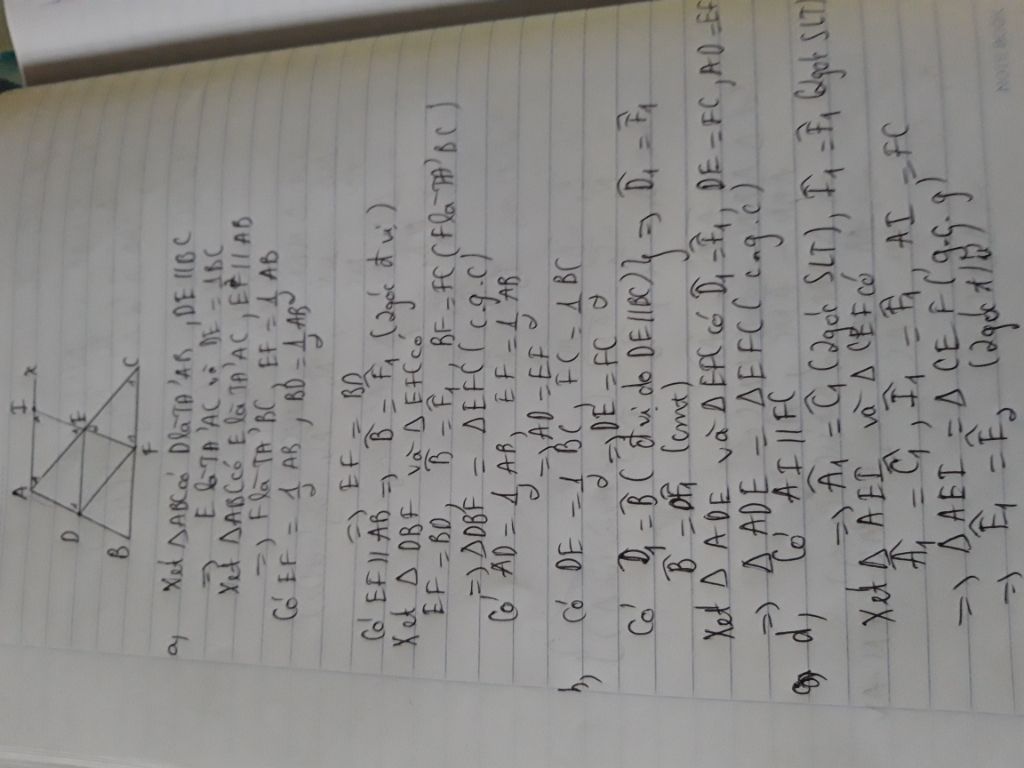 A I x
D E
B F C
a, Xét ΔABC có D là TĐ'AB, DE // BC
=> E là TĐ'AC và DE = 1/2 BC
Xét ΔABC có E là TĐ'AC, EF // AB
=> F là TĐ'BC EF = 1/2 AB
Có EF = 1/2 AB, BD = 1/2 AB
=> EF = BD
Có EF // AB => B̂ = F̂1 (2 góc đ.vị)
Xét Δ DBF và Δ EFC có
EF = BD, B̂ = F̂1 BF = FC (F là TĐ'BC)
=> ΔDBF = ΔEFC (c.g.c)
Có AD = 1/2 AB, EF = 1/2 AB
=> AD = EF
b, Có DE = 1/2 BC, FC = 1/2 BC
=> DE = FC
Có D̂1 = B̂ (đ.vị do DE // BC) } => D̂1 = F̂1
B̂ = F̂1 (cmt)
Xét Δ ADE và Δ EFC có D̂1 = F̂1, DE = FC, AD = EF
=> Δ ADE = Δ EFC (c.g.c)
d, Có AI // FC
=> Â1 = Ĉ1 (2 góc SLT), Î1 = F̂1 (2 góc SLT)
Xét Δ AEI và Δ CEF có
Â1 = Ĉ1, Î1 = F̂1 AI = FC
=> Δ AEI = Δ CEF (g.c.g)
=> Ê1 = Ê2 (2 góc t/ứ)
NOTEBOOK